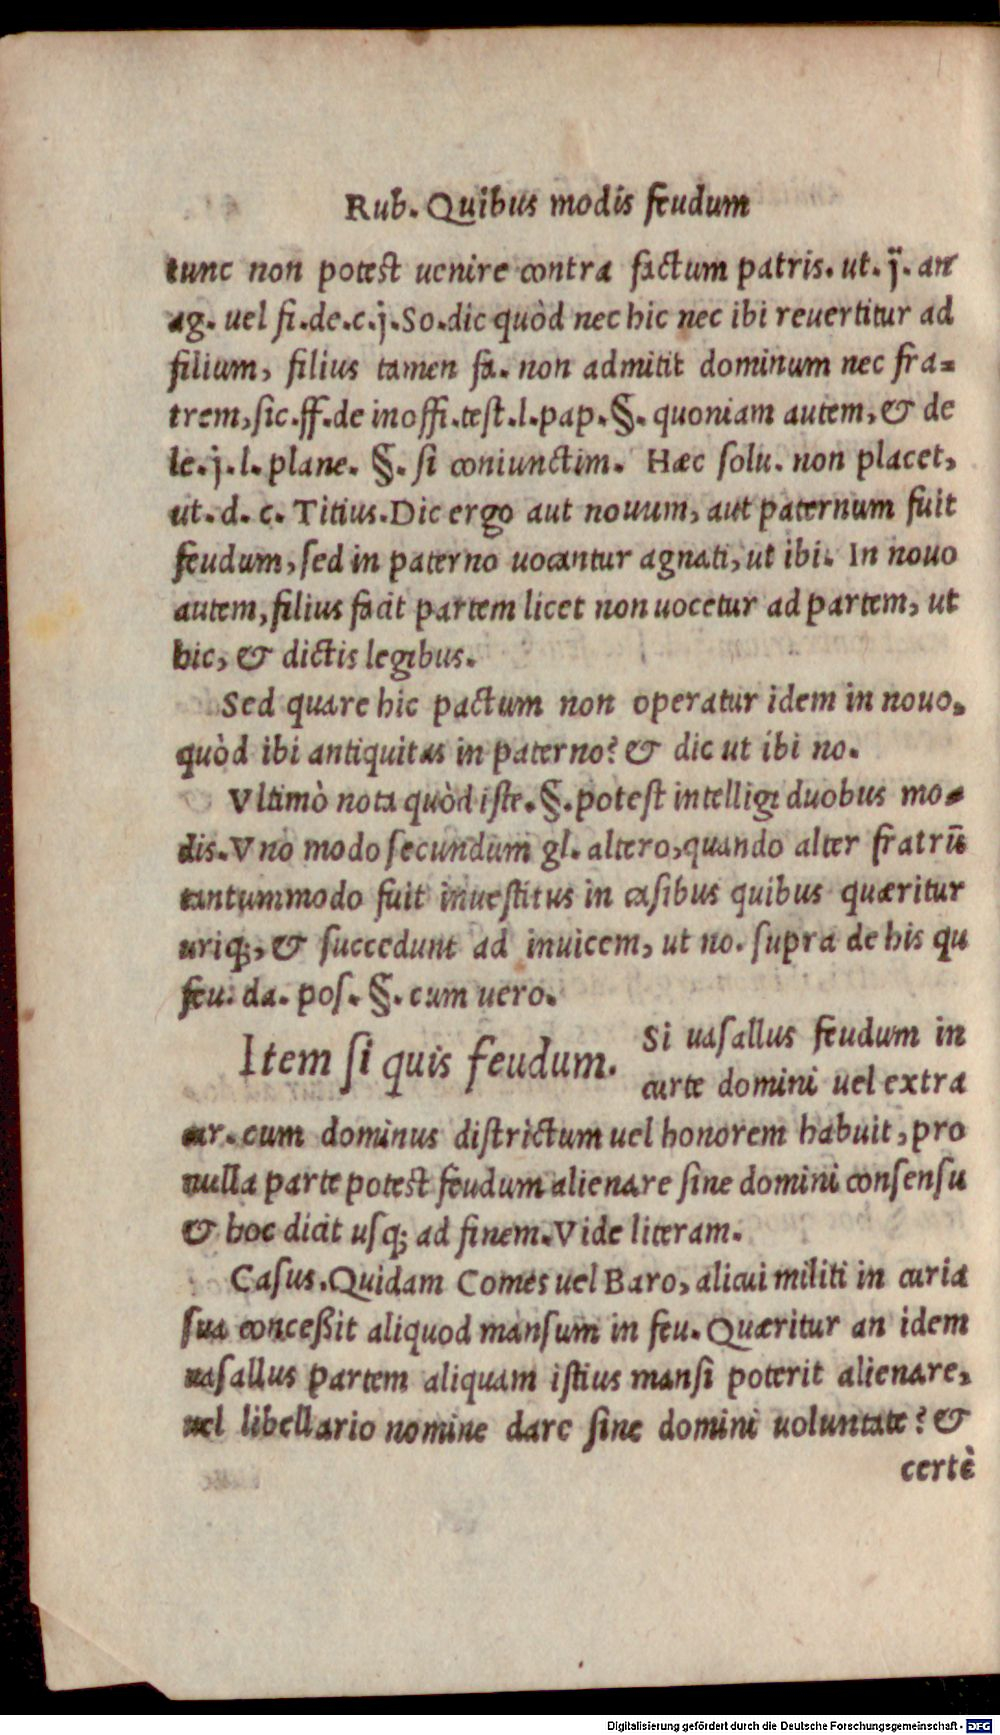 Rub. Quibus modis feudum
tunc non potest uenire contra factum patris. ut. ij. an
ag. uel fi. de. c. j. So. dic quòd nec hic nec ibi reuertitur ad
filium, filius tamen fa. non admitit dominum nec fra-
trem, sic. ff. de inoffi. test. l. pap. §. quoniam autem, & de
le. j. l. plane. §. si coniunctim. Hæc solu. non placet,
ut. d. c. Titius. Dic ergo aut nouum, aut paternum fuit
feudum, sed in paterno uocantur agnati, ut ibi. In nouo
autem, filius facit partem licet non uocetur ad partem, ut
hic, & dictis legibus.
Sed quare hic pactum non operatur idem in nouo.
quòd ibi antiquitas in paterno? & dic ut ibi no.
Vltimò nota quòd iste. §. potest intelligi duobus mo-
dis. Vno modo secundum gl. altero, quando alter fratrū
tantummodo fuit inuestitus in casibus quibus quæritur
utriq;, & succedunt ad inuicem, ut no. supra de his qu
feu. da. pos. §. cum uero.
Item si quis feudum. Si uasallus feudum in
curte domini uel extra
cur. cum dominus districtum uel honorem habuit, pro
nulla parte potest feudum alienare sine domini consensu
& hoc dicit usq; ad finem. Vide literam.
Casus. Quidam Comes uel Baro, alicui militi in curia
sua conceßit aliquod mansum in feu. Quæritur an idem
uasallus partem aliquam istius mansi poterit alienare,
uel libellario nomine dare sine domini uoluntate? &
certè
Digitalisierung gefördert durch die Deutsche Forschungsgemeinschaft - DFG